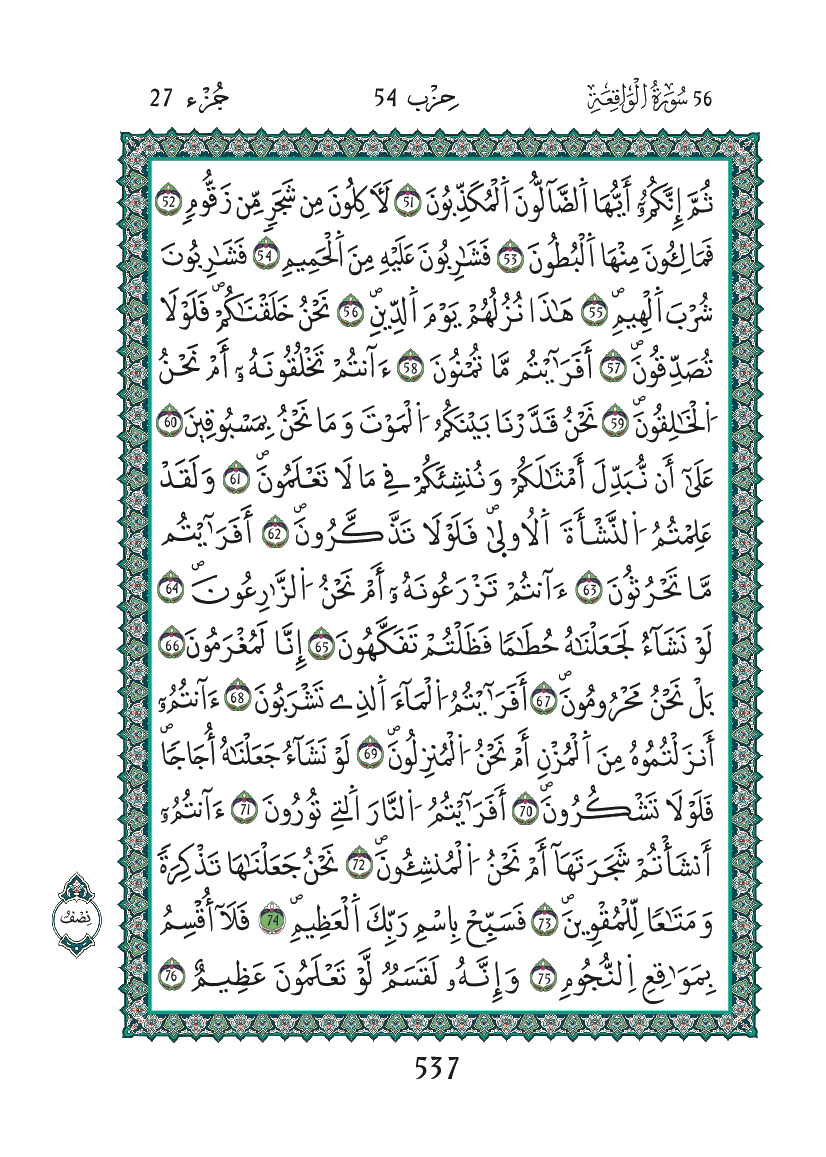 56 سُورَةُ الْوَاقِعَةِ حِزْب 54 جُزْء 27
ثُمَّ إِنَّكُمُۥٓ أَيُّهَا اَ۬لضَّآلُّونَ اَ۬لْمُكَذِّبُونَ 51 لَأٓكِلُونَ مِن شَجَرٖ مِّن زَقُّومٖ 52
فَمَالِـُٔونَ مِنْهَا اَ۬لْبُطُونَ 53 فَشَٰرِبُونَ عَلَيْهِ مِنَ اَ۬لْحَمِيمِۖ 54 فَشَٰرِبُونَ
شُرْبَ اَ۬لْهِيمِۖ 55 هَٰذَا نُزُلُهُمْ يَوْمَ اَ۬لدِّينِۖ 56 نَحْنُ خَلَقْنَٰكُمْۖ فَلَوْلَا
تُصَدِّقُونَۖ 57 أَفَرَٰٓيْتُم مَّا تُمْنُونَ 58 ءَآنتُمْ تَخْلُقُونَهُۥٓ أَمْ نَحْنُ
اُ۬لْخَٰلِقُونَۖ 59 نَحْنُ قَدَّرْنَا بَيْنَكُمُ اُ۬لْمَوْتَ وَمَا نَحْنُ بِمَسْبُوقِينَ 60
عَلَىٰٓ أَن نُّبَدِّلَ أَمْثَٰلَكُمْ وَنُنشِئَكُمْ فِے مَا لَا تَعْلَمُونَۖ 61 وَلَقَدْ
عَلِمْتُمُ اُ۬لنَّشْأَةَ اَ۬لْأُولَىٰۖ فَلَوْلَا تَذَّكَّرُونَۖ 62 أَفَرَٰٓيْتُم
مَّا تَحْرُثُونَ 63 ءَآنتُمْ تَزْرَعُونَهُۥٓ أَمْ نَحْنُ اُ۬لزَّٰرِعُونَۖ 64
لَوْ نَشَآءُ لَجَعَلْنَٰهُ حُطَٰمٗا فَظَلْتُمْ تَفَكَّهُونَ 65 إِنَّا لَمُغْرَمُونَ 66
بَلْ نَحْنُ مَحْرُومُونَۖ 67 أَفَرَٰٓيْتُمُ اُ۬لْمَآءَ اَ۬لذِے تَشْرَبُونَ 68 ءَآنتُمُۥٓ
أَنزَلْتُمُوهُ مِنَ اَ۬لْمُزْنِ أَمْ نَحْنُ اُ۬لْمُنزِلُونَۖ 69 لَوْ نَشَآءُ جَعَلْنَٰهُ أُجَاجٗاۖ
فَلَوْلَا تَشْكُرُونَۖ 70 أَفَرَٰٓيْتُمُ اُ۬لنَّارَ اَ۬لتِے تُورُونَ 71 ءَآنتُمُۥٓ
أَنشَأْتُمْ شَجَرَتَهَآ أَمْ نَحْنُ اُ۬لْمُنشِـُٔونَۖ 72 نَحْنُ جَعَلْنَٰهَا تَذْكِرَةٗ
وَمَتَٰعٗا لِّلْمُقْوِينَۖ 73 فَسَبِّحْ بِاسْمِ رَبِّكَ اَ۬لْعَظِيمِۖ 74 فَلَآ أُقْسِمُ
نِصْف
بِمَوَٰقِعِ اِ۬لنُّجُومِ 75 وَإِنَّهُۥ لَقَسَمٞ لَّوْ تَعْلَمُونَ عَظِيمٌ 76
537